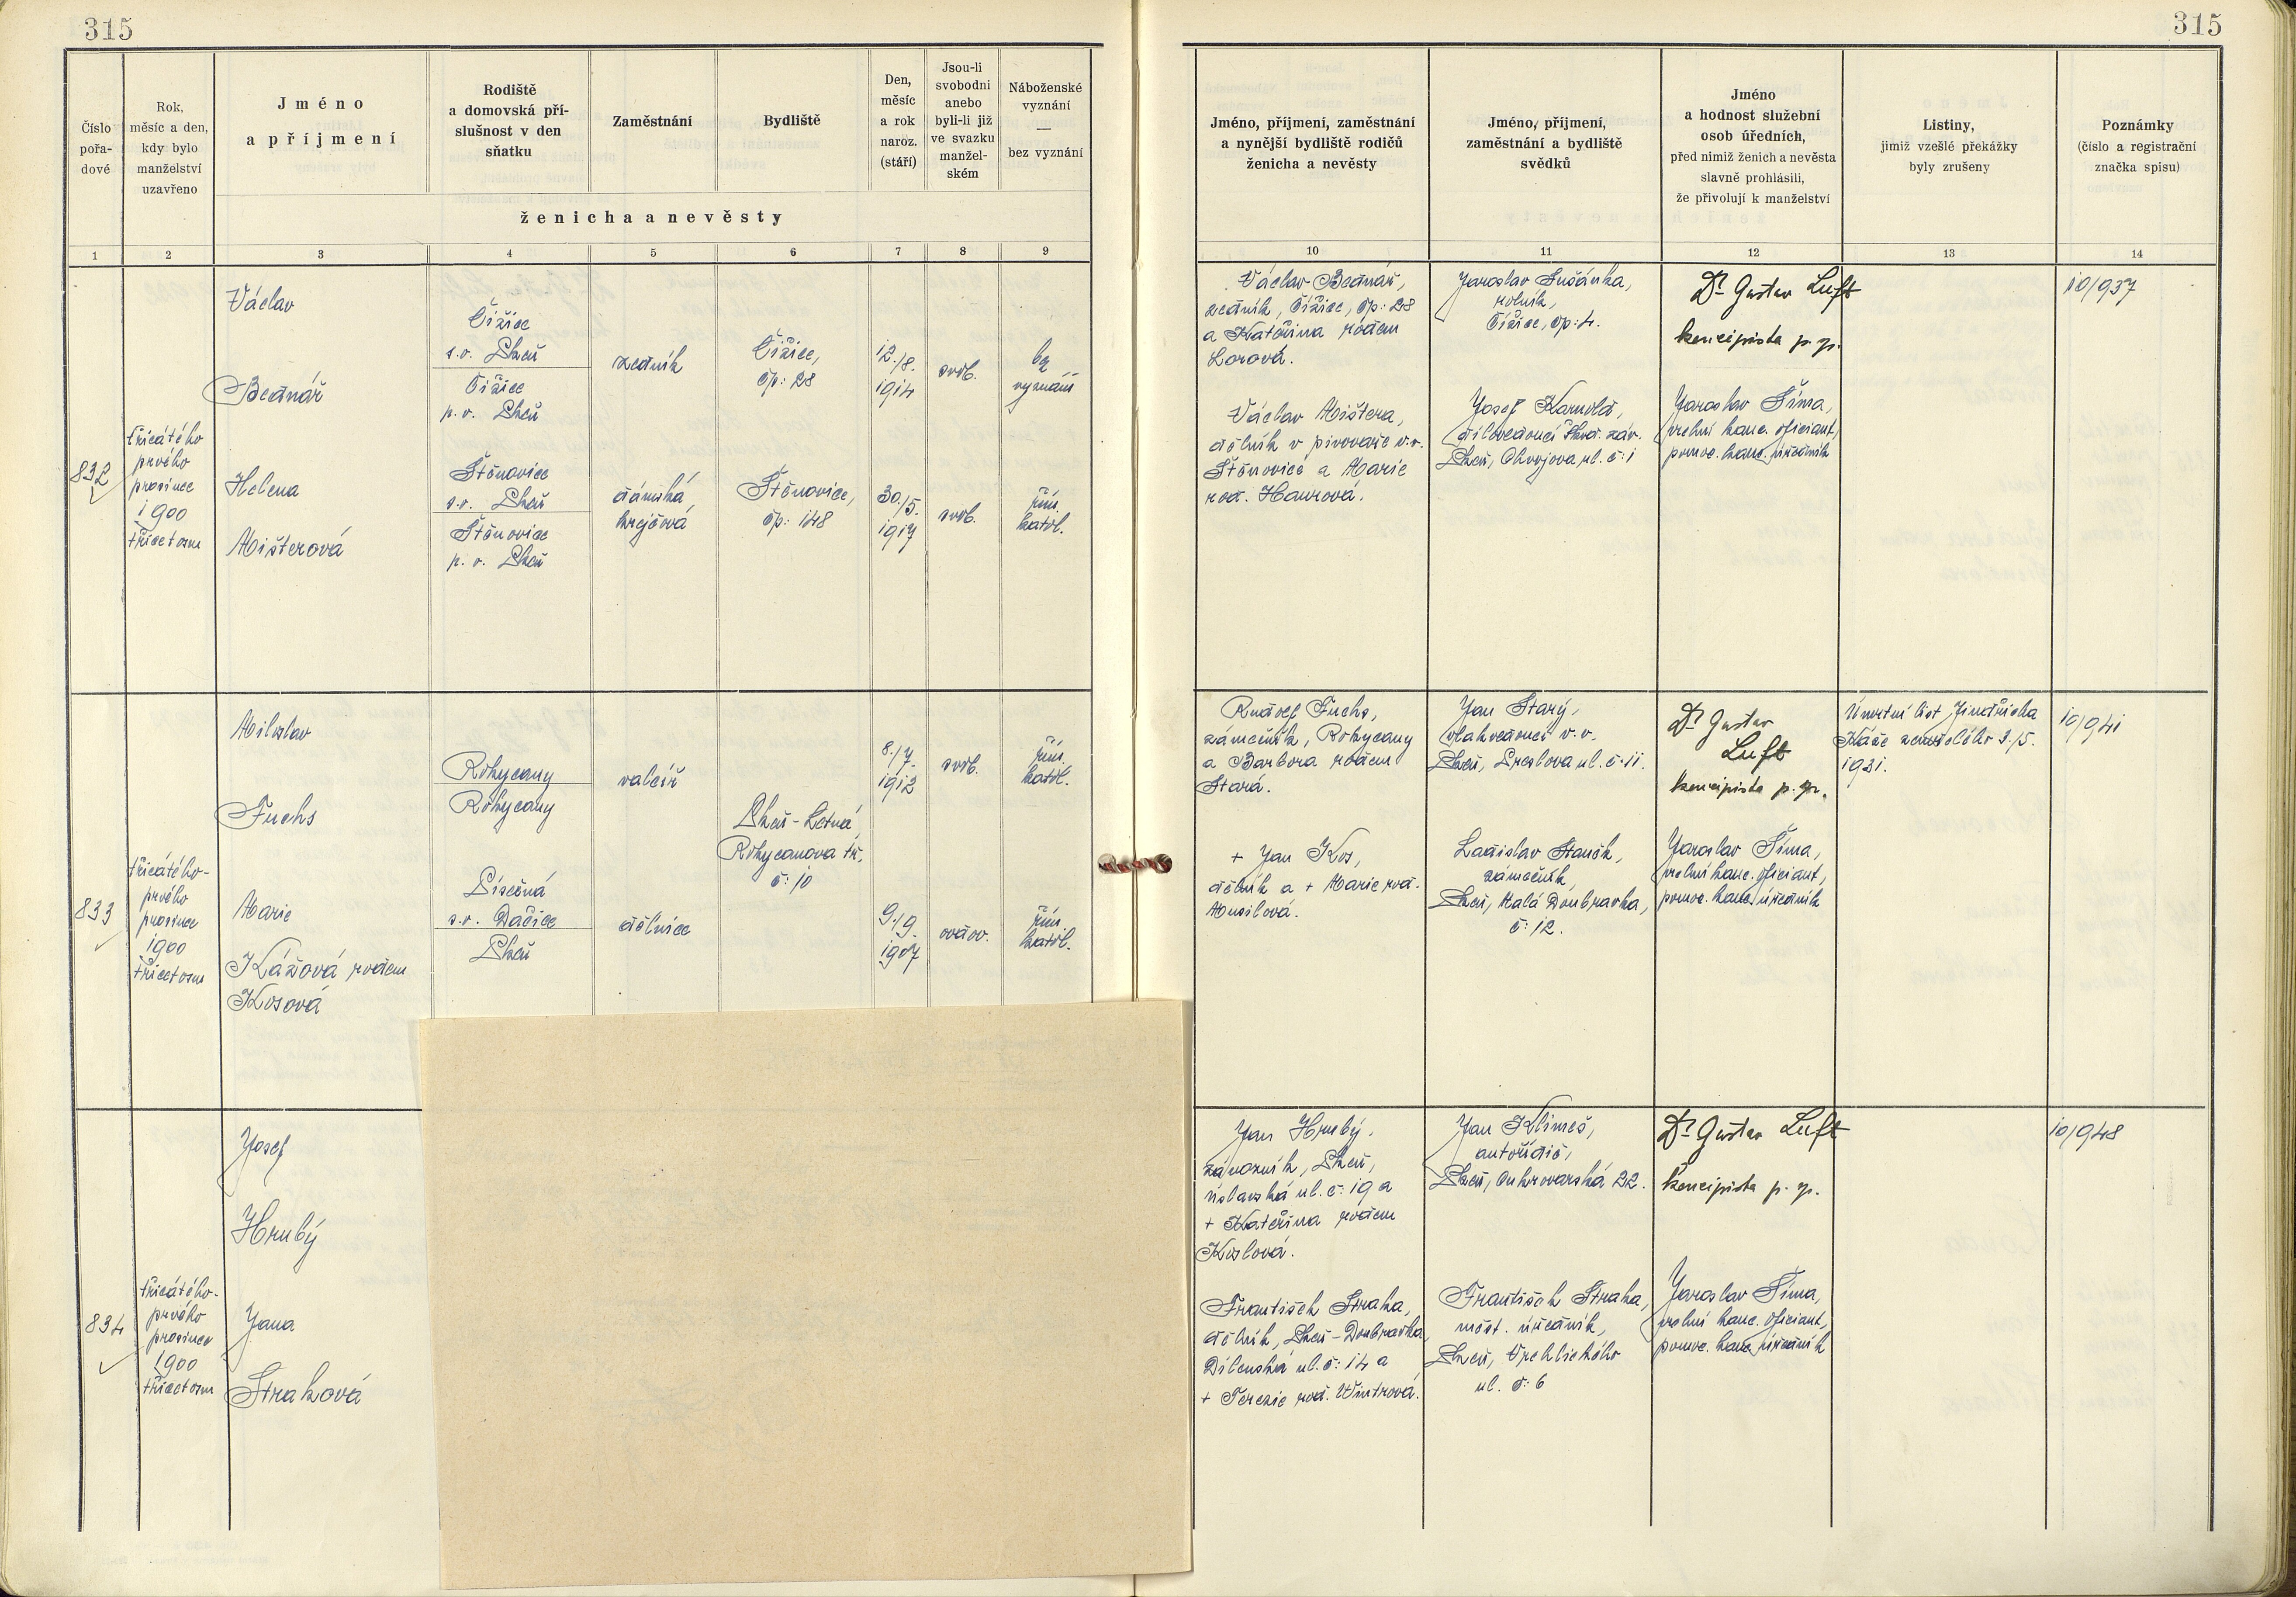 315
315
Číslo
pořa-
dové
Rok,
měsíc a den,
kdy bylo
manželství
uzavřeno
Jméno
a příjmení
Rodiště
a domovská pří-
slušnost v den
sňatku
Zaměstnání
Bydliště
Den,
měsíc
a rok
naroz.
(stáří)
Jsou-li
svobodni
anebo
byli-li již
ve svazku
manžel-
ském
Náboženské
vyznání
—
bez vyznání
ženicha a nevěsty
Jméno, příjmení, zaměstnání
a nynější bydliště rodičů
ženicha a nevěsty
Jméno, příjmení,
zaměstnání a bydliště
svědků
Jméno
a hodnost služební
osob úředních,
před nimiž ženich a nevěsta
slavně prohlásili,
že přivolují k manželství
Listiny,
jimiž vzešlé překážky
byly zrušeny
Poznámky
(číslo a registrační
značka spisu)
1 2 3 4 5 6 7 8 9
10 11 12 13 14
832
třicátého
prvého
prosince
1900
třicetosm
Václav
Bednář
Čižice
s.o. Plzeň
Čižice
p.o. Plzeň
zedník
Čižice,
čp: 28
12./8.
1914
svob.
bez
vyznání
Helena
Mišterová
Štěnovice
s.o. Plzeň
Štěnovice
p.o. Plzeň
dámská
krejčová
Štěnovice,
čp: 148
30./5.
1917
svob.
řím.
katol.
Václav Bednář,
zedník, Čižice, čp: 28
a Kateřina rodem
Lorová.
Václav Mištera,
dělník v pivovaře v.v.
Štěnovice a Marie
rod. Haurová.
Jaroslav Sušánka,
rolník,
Čižice, čp: 4.
Josef
dílovedoucí Škod. záv.
Plzeň, Chvojova ul. č: 1
Dr Gustav Luft
koncipista p. p.
Jaroslav Šíma,
vrchní kanc. oficiant,
pomoc. kanc. úředník
10/937
833
třicátého-
prvého
prosince
1900
třicetosm
Miloslav
Fuchs
Rokycany
Rokycany
valcíř
Plzeň-Letná
Rokycanova tř.
č: 10
8./7.
1912
svob.
řím.
katol.
Marie
Kášová rodem
Kosová
Písečná
s.o. Dačice
Plzeň
dělnice
9./9.
1907
ovdov.
řím.
katol.
Rudolf Fuchs,
zámečník, Rokycany
a Barbora rodem
Stará.
+ Jan Kos,
dělník a + Marie rod.
Musilová.
Jan Starý,
vlakvedoucí v.v.
Plzeň, Preslova ul. č: 11.
Ladislav Staněk,
zámečník
Plzeň, Malá Doubravka,
č: 12.
Dr Gustav
Luft
koncipista p. p.
Jaroslav Šíma,
vrchní kanc. oficiant,
pomoc. kanc. úředník
Úmrtní list Jindřicha
Káše zemřelého 3./5.
1931.
10/941
834
třicátého-
prvého
prosince
1900
třicetosm
Josef
Hrubý
Jana
Straková
Jan Hrubý,
závozník, Plzeň,
úslavská ul. č: 19 a
+ Kateřina rodem
Koslová.
František Straka,
dělník, Plzeň-Doubravka,
Dílenská ul. č: 14 a
+ Terezie rod. Wintrová.
Jan Klimeš,
autořidič,
Plzeň, Cukrovarská 22.
František Straka,
měst. úředník,
Plzeň, Vrchlického
ul. č: 6
Dr Gustav Luft
koncipista p. p.
Jaroslav Šíma,
vrchní kanc. oficiant,
pomoc. kanc. úředník
10/948